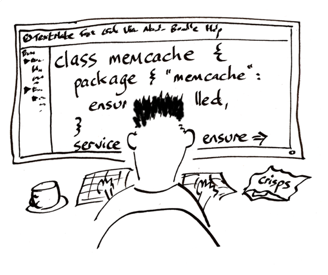 TextMate File Edit View Bundle Help
class memcache {
package { "memcache":
ensur lled,
}
service ensure =>
crisps